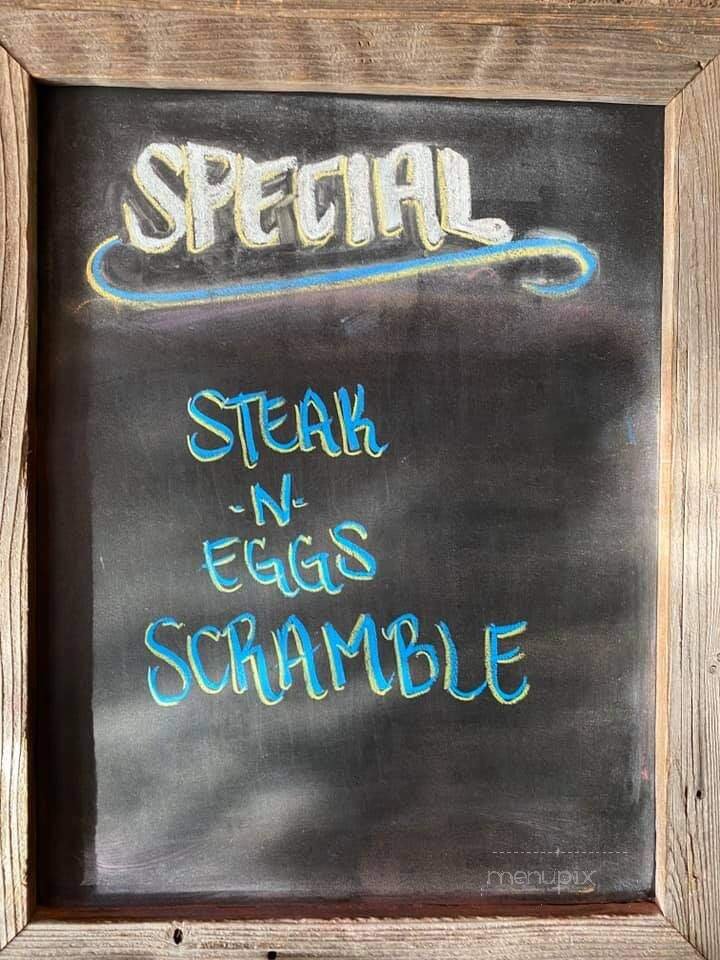 SPECIAL
STEAK
-N-
EGGS
SCRAMBLE
menupix